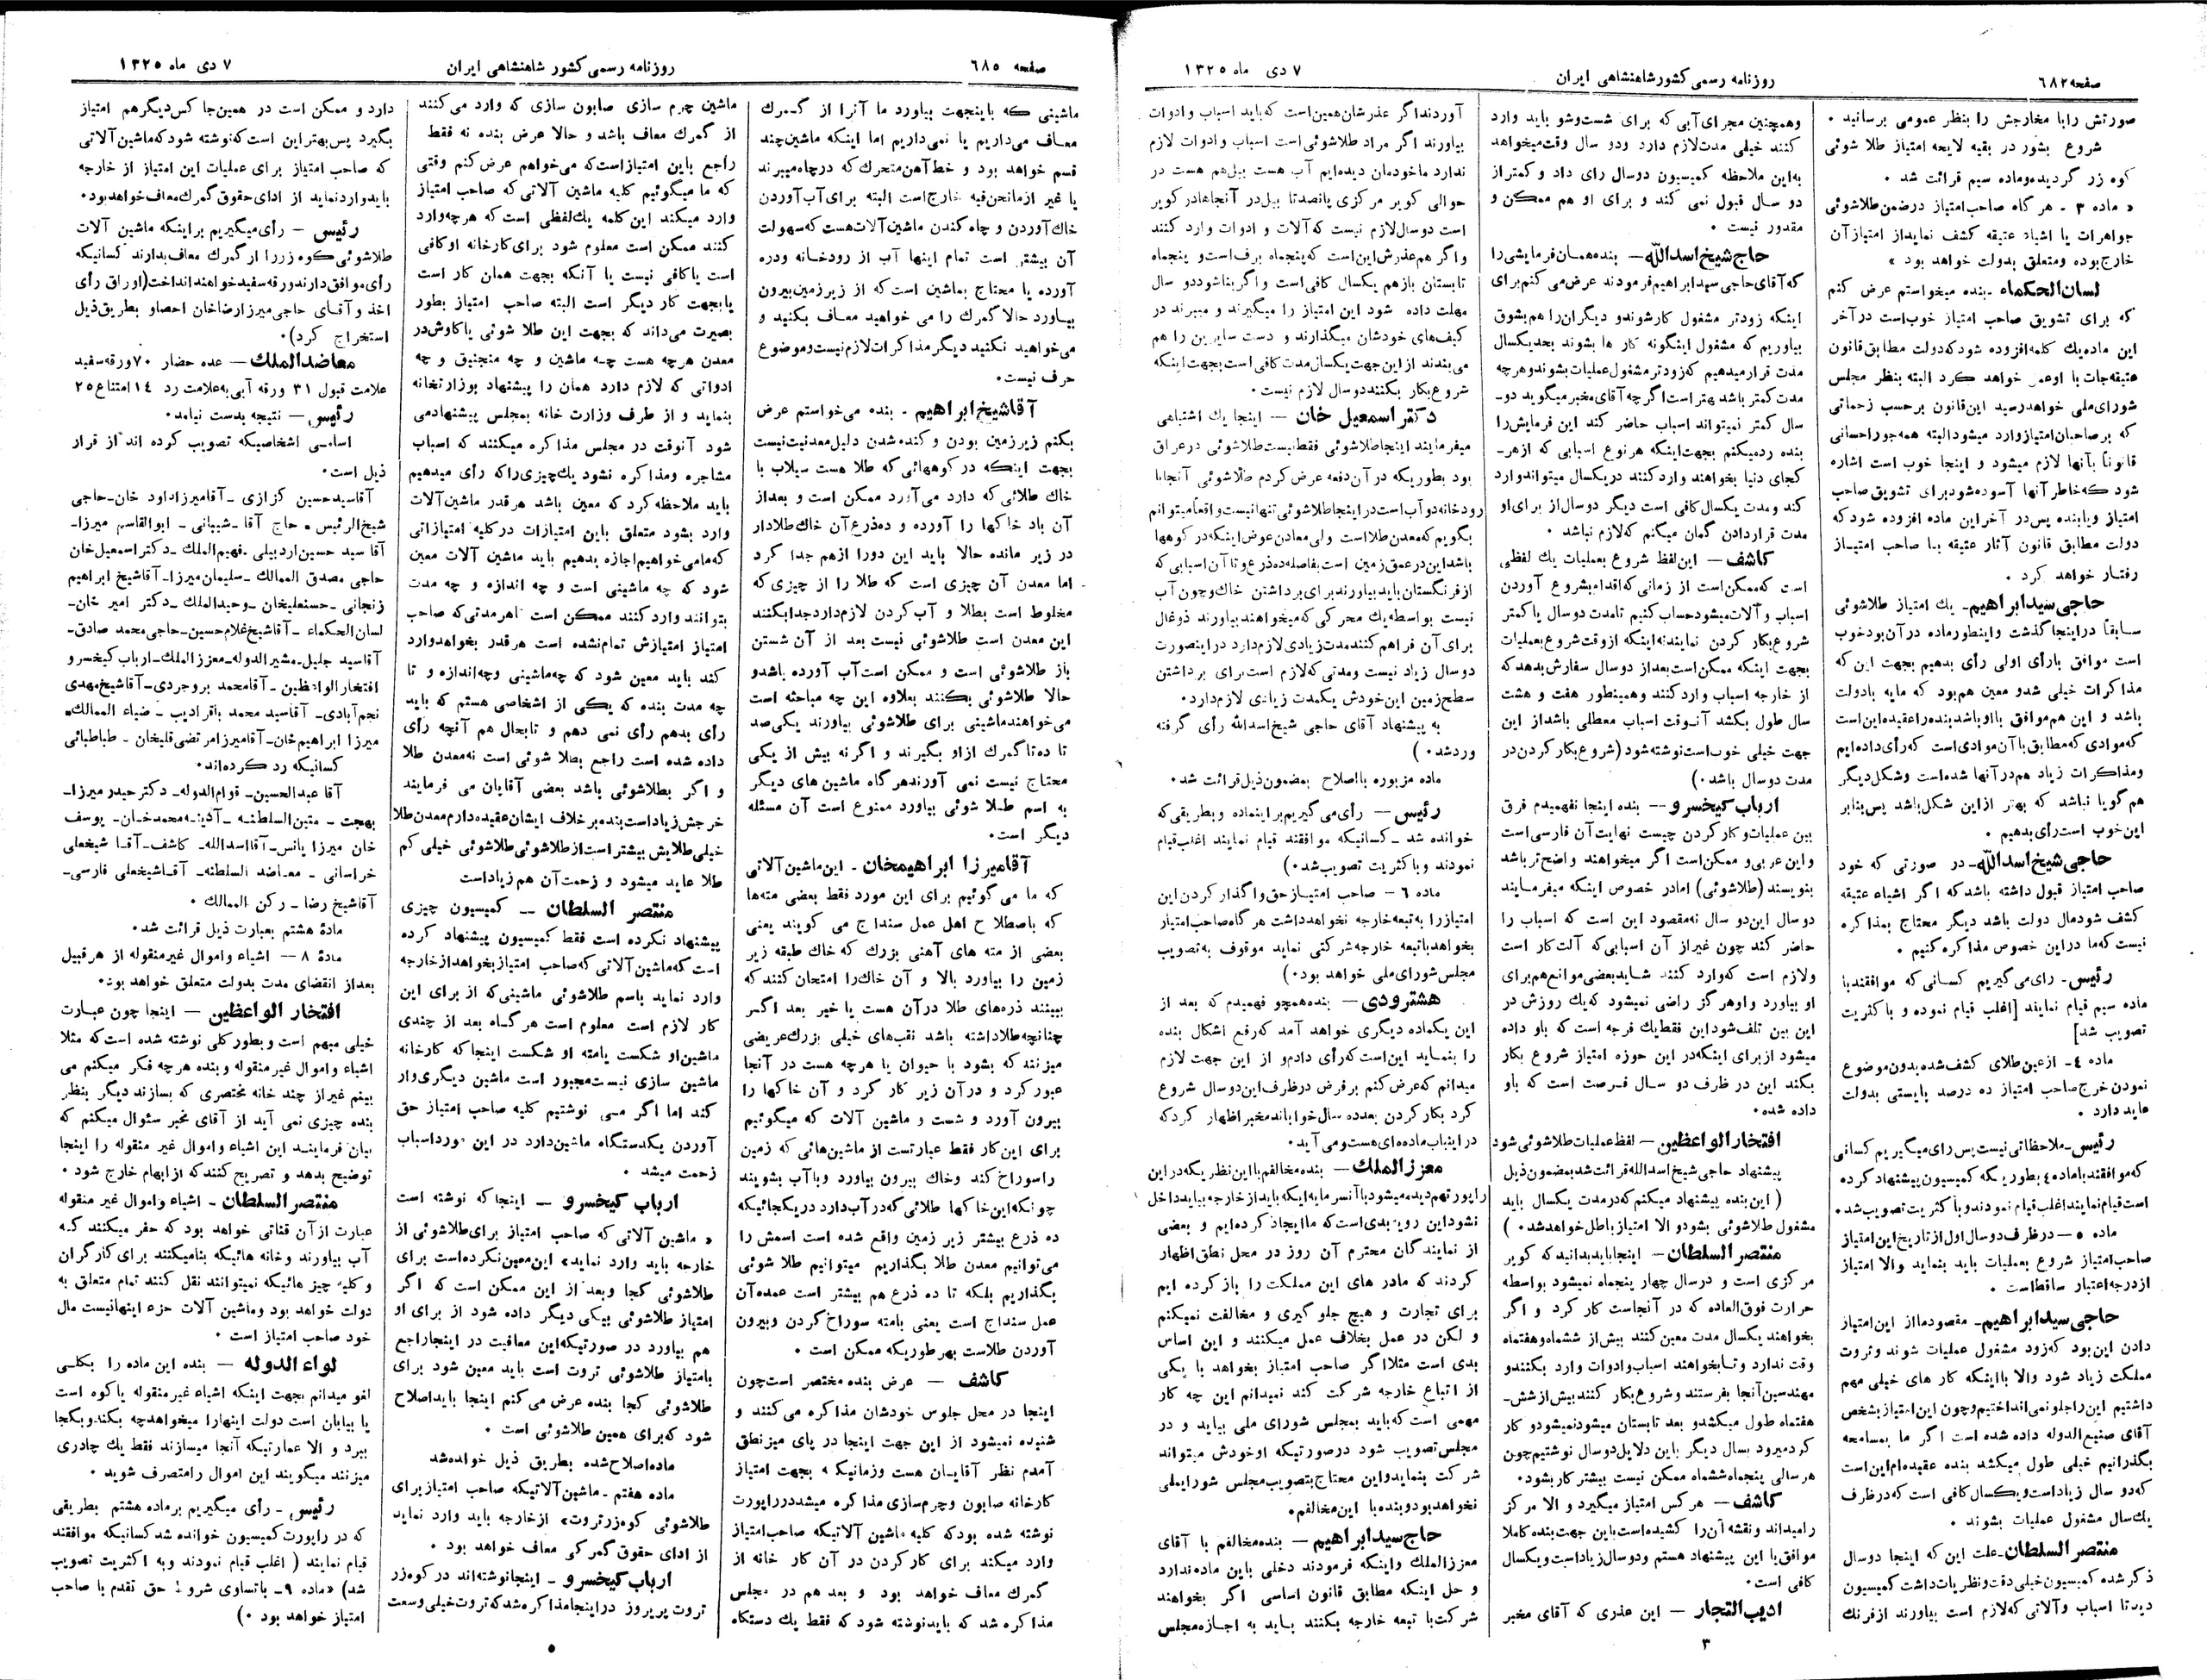 صفحه ٦٨٢
روزنامه رسمی کشور شاهنشاهی ایران
٧ دی ماه ١٣٢٥
صورتش رابا مخارجش را بنظر عمومی برسانید .
شروع بشور در بقیه لایحه امتیاز طلا شوئی
کوه زر گردیده وماده سیم قرائت شد .
« ماده ٣ - هرگاه صاحب امتیاز درضمن طلاشوئی
جواهرات یا اشیاء عتیقه کشف نماید از امتیاز آن
خارج بوده ومتعلق بدولت خواهد بود »
لسان الحکماء - بنده میخواستم عرض کنم
که برای تشویق صاحب امتیاز خوب است در آخر
این ماده یك کلمه افزوده شود که دولت مطابق قانون
عتیقه جات با او عمل خواهد کرد البته بنظر مجلس
شورای ملی خواهد رسید این قانون برحسب زحماتی
که بر صاحبان امتیاز وارد میشود البته همه جور احسانی
قانوناً بآنها لازم میشود و اینجا خوب است اشاره
شود که خاطر آنها آسوده شود برای تشویق صاحب
امتیاز وبابنده پس در آخر این ماده افزوده شود که
دولت مطابق قانون آثار عتیقه با صاحب امتیاز
رفتار خواهد کرد .
حاجی سید ابراهیم - یك امتیاز طلاشوئی
سابقاً در اینجا گذشت و اینطور ماده در آن بود خوب
است موافق بارأی اولی رأی بدهیم بجهت این که
مذاکرات خیلی شد و معین هم بود که مایه بادولت
باشد و این هم موافق با او باشد بنده را عقیده این است
که موادی که مطابق با آن موادی است که رأی داده ایم
ومذاکرات زیاد هم در آنها شده است وشکل دیگر
هم گویا نباشد که بهتر از این شکل باشد پس بنابر
این خوب است رأی بدهیم .
حاجی شیخ اسدالله - در صورتی که خود
صاحب امتیاز قبول داشته باشد که اگر اشیاء عتیقه
کشف شود مال دولت باشد دیگر محتاج بمذاکره
نیست که ما در این خصوص مذاکره کنیم .
رئیس - رای می گیریم کسانی که موافقند با
ماده سیم قیام نمایند [اغلب قیام نموده و باکثریت
تصویب شد]
ماده ٤ - از عین طلای کشف شده بدون موضوع
نمودن خرج صاحب امتیاز ده درصد بایستی بدولت
عاید دارد .
رئیس - ملاحظاتی نیست پس رای میگیریم کسانی
که موافقند با ماده ٤ بطوریکه کمیسیون پیشنهاد کرده
است قیام نمایند اغلب قیام نمودند و باکثریت تصویب شد .
ماده ٥ - در ظرف دو سال اول از تاریخ این امتیاز
صاحب امتیاز شروع بعملیات باید بنماید والا امتیاز
از درجه اعتبار ساقط است .
حاجی سید ابراهیم - مقصود ما از این امتیاز
دادن این بود که زود مشغول عملیات شوند وثروت
مملکت زیاد شود والا با اینکه کار های خیلی مهم
داشتیم این را جلو نمی انداختیم وچون این امتیاز بشخص
آقای صنیع الدوله داده شده است اگر ما بمسامحه
بگذرانیم خیلی طول میکشد بنده عقیده ام این است
که دو سال زیاد است ویکسال کافی است که در ظرف
یك سال مشغول عملیات بشوند .
منتصر السلطان - علت این که اینجا دوسال
ذکر شده کمیسیون خیلی دقت و نظریات داشت کمیسیون
دید تا اسباب و آلاتی که لازم است بیاورند از فرنك
وهمچنین مجرای آبی که برای شست وشو باید وارد
کنند خیلی مدت لازم دارد ودو سال وقت میخواهد
به این ملاحظه کمیسیون دوسال رای داد و کمتر از
دو سال قبول نمی کند و برای او هم ممکن و
مقدور نیست .
حاج شیخ اسدالله - بنده همان فرمایشی را
که آقای حاجی سید ابراهیم فرمودند عرض می کنم برای
اینکه زودتر مشغول کار شوند و دیگران را هم بشوق
بیاوریم که مشغول اینگونه کار ها بشوند بحد یکسال
مدت قرار میدهیم که زودتر مشغول عملیات بشوند و هرچه
مدت کمتر باشد بهتر است اگر چه آقای مخبر میگوید دو-
سال کمتر نمیتواند اسباب حاضر کند این فرمایش را
بنده رد میکنم بجهت اینکه هر نوع اسبابی که از هر-
کجای دنیا بخواهند وارد کنند در یکسال میتواند وارد
کند و مدت یکسال کافی است دیگر دوسال از برای او
مدت قرار دادن گمان میکنم که لازم نباشد .
کاشف - این لفظ شروع بعملیات یك لفظی
است که ممکن است از زمانی که اقدام بشروع آوردن
اسباب و آلات میشود حساب کنیم تا مدت دوسال یا کمتر
شروع بکار کردن نمایند نه اینکه از وقت شروع بعملیات
بجهت اینکه ممکن است بعد از دو سال سفارش بدهد که
از خارجه اسباب وارد کنند و همینطور هفت و هشت
سال طول بکشد آنوقت اسباب معطلی باشد از این
جهت خیلی خوب است نوشته شود (شروع بکار کردن در
مدت دوسال باشد .)
ارباب کیخسرو - بنده اینجا نفهمیدم فرق
بین عملیات و کار کردن چیست نهایت آن فارسی است
و این عربی و ممکن است اگر میخواهند واضح تر باشد
بنویسند (طلاشوئی) اما در خصوص اینکه میفرمایند
دوسال این دو سال نه مقصود این است که اسباب را
حاضر کند چون غیر از آن اسبابی که آلت کار است
ولازم است که وارد کنند شاید بعضی موانع هم برای
او بیاورد واو هرگز راضی نمیشود که یك روزش در
این بین تلف شود این فقط یك فرجه است که باو داده
میشود از برای اینکه در این حوزه امتیاز شروع بکار
بکند این در ظرف دو سال فرصت است که باو
داده شده .
افتخار الواعظین - لفظ عملیات طلاشوئی شود
پیشنهاد حاجی شیخ اسدالله قرائت شد بمضمون ذیل
( این بنده پیشنهاد میکنم که در مدت یکسال باید
مشغول طلاشوئی بشود والا امتیاز باطل خواهد شد . )
منتصر السلطان - اینجا باید بدانید که کویر
مرکزی است و در سال چهار پنجماه نمیشود بواسطه
حرارت فوق العاده که در آنجاست کار کرد و اگر
بخواهند یکسال مدت معین کنند بیش از ششماه و هفتماه
وقت ندارد و تا بخواهند اسباب و ادوات وارد بکنند و
مهندسین آنجا بفرستند و شروع بکار کنند بیش از شش-
هفتماه طول میکشد و بعد تابستان میشود نمیشود کار
کرد میرود بسال دیگر باین دلایل دوسال نوشتیم چون
هر سالی پنجماه ششماه ممکن نیست بیشتر کار بشود .
کاشف - هر کس امتیاز میگیرد و الا مرکز
را میداند و نقشه آن را کشیده است باین جهت بنده کاملا
موافق با این پیشنهاد هستم و دوسال زیاد است و یکسال
کافی است .
ادیب التجار - این عذری که آقای مخبر
آوردند اگر عذرشان همین است که باید اسباب و ادوات
بیاورند اگر مراد طلاشوئی است اسباب و ادوات لازم
ندارد ما خودمان دیده ایم آب هست بیل هم هست در
حوالی کویر مرکزی پانصد تا بیل در آنجاها در کویر
است دوسال لازم نیست که آلات و ادوات وارد کنند
و اگر هم عذرش این است که پنجماه برف است و پنجماه
تابستان باز هم یکسال کافی است و اگر بنا شود دو سال
مهلت داده شود این امتیاز را میگیرند و میبرند در
کیف های خودشان میگذارند و دست سایرین را هم
می بندند از این جهت یکسال مدت کافی است بجهت اینکه
شروع بکار بکنند دو سال لازم نیست .
دکتر اسمعیل خان - اینجا یك اشتباهی
میفرمایند اینجا طلاشوئی فقط نیست طلاشوئی در عراق
بود بطوریکه در آن دفعه عرض کردم طلاشوئی آنجا با
رودخانه دو آب است در اینجا طلاشوئی تنها نیست واقعاً میتوانم
بگویم که معدن طلا است ولی معادن عوض اینکه در کوهها
باشد این در عمق زمین است بفاصله ده ذرع و تا آن اسبابی که
از فرنگستان باید بیاورند برای برداشتن خاك و چون آب
نیست بواسطه یك محرکی که میخواهند بیاورند ذوغال
برای آن فراهم کنند مدت زیادی لازم دارد در اینصورت
دوسال زیاد نیست و مدتی که لازم است برای برداشتن
سطح زمین این خودش یکمدت زیادی لازم دارد .
به پیشنهاد آقای حاجی شیخ اسدالله رأی گرفته
ورد شد . )
ماده مزبوره بااصلاح بمضمون ذیل قرائت شد .
رئیس - رأی می گیریم بر اینماده و بطریقی که
خوانده شد - کسانیکه موافقند قیام نمایند اغلب قیام
نمودند و باکثریت تصویب شد .)
ماده ٦ - صاحب امتیاز حق واگذار کردن این
امتیاز را به تبعه خارجه نخواهد داشت هرگاه صاحب امتیاز
بخواهد با تبعه خارجه شرکتی نماید موقوف به تصویب
مجلس شورای ملی خواهد بود .)
هشترودی - بنده همچو فهمیدم که بعد از
این یکماده دیگری خواهد آمد که رفع اشکال بنده
را بنماید این است که رأی دادم و از این جهت لازم
میدانم که عرض کنم بر فرض در ظرف این دوسال شروع
کرد بکار کردن بعد ده سال خواباند مخبر اظهار کرد که
در اینباب ماده ای هست و می آید .
معزز الملك - بنده مخالفم با این نظر یکه در این
راپورت هم دیده میشود با آنسرمایه ایکه باید از خارجه بیاید داخل
نشود این رویه بدی است که ما ایجاد کرده ایم و بعضی
از نمایندگان محترم آن روز در محل نطق اظهار
کردند که ما در های این مملکت را باز کرده ایم
برای تجارت و هیچ جلو گیری و مخالفت نمیکنم
و لکن در عمل بخلاف عمل میکنند و این اساس
بدی است مثلا اگر صاحب امتیاز بخواهد با یکی
از اتباع خارجه شرکت کند نمیدانم این چه کار
مهمی است که باید بمجلس شورای ملی بیاید و در
مجلس تصویب شود در صورتیکه او خودش میتواند
شرکت بنماید و این محتاج بتصویب مجلس شورایملی
نخواهد بود و بنده با این مخالفم .
حاج سید ابراهیم - بنده مخالفم با آقای
معزز الملك و اینکه فرمودند دخلی باین ماده ندارد
و حل اینکه مطابق قانون اساسی اگر بخواهند
شرکت با تبعه خارجه بکنند باید به اجازه مجلس
٣
صفحه ٦٨٥
روزنامه رسمی کشور شاهنشاهی ایران
٧ دی ماه ١٣٢٥
ماشینی که باینجهت بیاورد ما آنرا از گمرك
معاف می داریم یا نمی داریم اما اینکه ماشین چند
قسم خواهد بود و خط آهن متحرك که در چاه میبرند
یا غیر از مانحن فیه خارج است البته برای آب آوردن
خاك آوردن و چاه کندن ماشین آلات هست که سهولت
آن بیشتر است تمام اینها آب از رودخانه و دره
آورده یا محتاج بماشین است که از زیر زمین بیرون
بیاورد حالا گمرك را می خواهید معاف بکنید و
می خواهید نکنید دیگر مذاکرات لازم نیست و موضوع
حرف نیست .
آقا شیخ ابراهیم - بنده می خواستم عرض
بکنم زیر زمین بودن و کنده شدن دلیل معدنیت نیست
بجهت اینکه در کوههائی که طلا هست سیلاب با
خاك طلائی که دارد می آورد ممکن است و بعد از
آن باد خاکها را آورده و ده ذرع آن خاك طلادار
در زیر مانده حالا باید این دورا از هم جدا کرد
اما معدن آن چیزی است که طلا را از چیزی که
مخلوط است بطلا و آب کردن لازم دارد جدا بکنند
این معدن است طلاشوئی نیست بعد از آن شستن
باز طلاشوئی است و ممکن است آب آورده باشد و
حالا طلاشوئی بکنند بعلاوه این چه مباحثه است
می خواهند ماشینی برای طلاشوئی بیاورند یکی صد
تا ده تا گمرك از او بگیرند و اگر نه بیش از یکی
محتاج نیست نمی آورند هرگاه ماشین های دیگر
به اسم طلا شوئی بیاورد ممنوع است آن مسئله
دیگر است .
آقا میرزا ابراهیمخان - این ماشین آلاتی
که ما می گوئیم برای این مورد فقط بعضی مته ها
که باصطلاح اهل عمل سنداج می گویند یعنی
بعضی از مته های آهنی بزرك که خاك طبقه زیر
زمین را بیاورد بالا و آن خاك را امتحان کنند که
ببینند ذره های طلا در آن هست یا خیر بعد اگر
چنانچه طلا داشته باشد نقب های خیلی بزرك عریضی
میزنند که بشود با حیوان یا هرچه هست در آنجا
عبور کرد و در آن زیر کار کرد و آن خاکها را
بیرون آورد و شست و ماشین آلات که میگوئیم
برای این کار فقط عبارتست از ماشین هائی که زمین
را سوراخ کند و خاك بیرون بیاورد و با آب بشویند
چونکه این خاکها طلائی که در آب دارد در یکجائیکه
ده ذرع بیشتر زیر زمین واقع شده است اسمش را
می توانیم معدن طلا بگذاریم میتوانیم طلا شوئی
بگذاریم بلکه تا ده ذرع هم بیشتر است عمده آن
عمل سنداج است یعنی بامته سوراخ کردن و بیرون
آوردن طلاست بهر طوریکه ممکن است .
کاشف - عرض بنده مختصر است چون
اینجا در محل جلوس خودشان مذاکره می کنند و
شنیده نمیشود از این جهت اینجا در پای میز نطق
آمدم نظر آقایان هست و زمانیکه بجهت امتیاز
کارخانه صابون و چرم سازی مذاکره میشد در راپورت
نوشته شده بود که کلیه ماشین آلاتیکه صاحب امتیاز
وارد میکند برای کار کردن در آن کار خانه از
گمرك معاف خواهد بود و بعد هم در مجلس
مذاکره شد که باید نوشته شود که فقط یك دستگاه
ماشین چرم سازی صابون سازی که وارد می کنند
از گمرك معاف باشد و حالا عرض بنده نه فقط
راجع باین امتیاز است که می خواهم عرض کنم وقتی
که ما میگوئیم کلیه ماشین آلاتی که صاحب امتیاز
وارد میکند این کلمه یك لفظی است که هرچه وارد
کنند ممکن است معلوم شود برای کارخانه او کافی
است یا کافی نیست یا آنکه بجهت همان کار است
یا بجهت کار دیگر است البته صاحب امتیاز بطور
بصیرت می داند که بجهت این طلا شوئی یا کاوش در
معدن هرچه هست چه ماشین و چه منجنیق و چه
ادواتی که لازم دارد همان را پیشنهاد بوزارتخانه
بنماید و از طرف وزارت خانه بمجلس پیشنهاد می
شود آنوقت در مجلس مذاکره میکنند که اسباب
مشاجره و مذاکره نشود یك چیزی را که رأی میدهیم
باید ملاحظه کرد که معین باشد هر قدر ماشین آلات
وارد بشود متعلق باین امتیازات در کلیه امتیازاتی
که ما می خواهیم اجازه بدهیم باید ماشین آلات معین
شود که چه ماشینی است و چه اندازه و چه مدت
بتوانند وارد کنند ممکن است تا هر مدتی که صاحب
امتیاز امتیازش تمام نشده است هر قدر بخواهد وارد
کند باید معین شود که چه ماشینی و چه اندازه و تا
چه مدت بنده که یکی از اشخاصی هستم که باید
رأی بدهم رأی نمی دهم و تابحال هم آنچه رأی
داده شده است راجع بطلا شوئی است نه معدن طلا
و اگر بطلاشوئی باشد بعضی آقایان می فرمایند
خرجش زیاد است بنده بر خلاف ایشان عقیده دارم معدن طلا
خیلی طلایش بیشتر است از طلاشوئی طلاشوئی خیلی کم
طلا عاید میشود و زحمت آن هم زیاد است
منتصر السلطان - کمیسیون چیزی
پیشنهاد نکرده است فقط کمیسیون پیشنهاد کرده
است که ماشین آلاتی که صاحب امتیاز بخواهد از خارجه
وارد نماید باسم طلاشوئی ماشینی که از برای این
کار لازم است معلوم است هرگاه بعد از چندی
ماشین او شکست یا مته او شکست اینجا که کارخانه
ماشین سازی نیست مجبور است ماشین دیگری وار
کند اما اگر می نوشتیم کلیه صاحب امتیاز حق
آوردن یکدستگاه ماشین دارد در این مورد اسباب
زحمت میشد .
ارباب کیخسرو - اینجا که نوشته است
« ماشین آلاتی که صاحب امتیاز برای طلاشوئی از
خارجه باید وارد نماید » این معین نکرده است برای
طلاشوئی کجا و بعد از این ممکن است که اگر
امتیاز طلاشوئی بیکی دیگر داده شود از برای او
هم بیاورد در صورتیکه این معافیت در اینجا راجع
بامتیاز طلاشوئی ثروت است باید معین شود برای
طلاشوئی کجا بنده عرض می کنم اینجا باید اصلاح
شود که برای همین طلاشوئی است .
ماده اصلاح شده بطریق ذیل خوانده شد
ماده هفتم - ماشین آلاتیکه صاحب امتیاز برای
طلاشوئی کوه زر ثروت » از خارجه باید وارد نماید
از ادای حقوق گمرکی معاف خواهد بود .
ارباب کیخسرو - اینجا نوشته اند در کوه زر
ثروت پریروز در اینجا مذاکره شد که ثروت خیلی وسعت
دارد و ممکن است در همین جا کس دیگر هم امتیاز
بگیرد پس بهتر این است که نوشته شود که ماشین آلاتی
که صاحب امتیاز برای عملیات این امتیاز از خارجه
باید وارد نماید از ادای حقوق گمرك معاف خواهد بود .
رئیس - رأی میگیریم بر اینکه ماشین آلات
طلاشوئی کوه زر را از گمرك معاف بدارند کسانیکه
رأی موافق دارند ورقه سفید خواهند انداخت (اوراق رأی
اخذ و آقای حاجی میرزا رضا خان احصاء بطریق ذیل
استخراج کرد) .
معاضد الملك - عده حضار ٧٠ ورقه سفید
علامت قبول ٣١ ورقه آبی به علامت رد ١٤ امتناع ٢٥
رئیس - نتیجه بدست نیامد .
اسامی اشخاصیکه تصویب کرده اند از قرار
ذیل است .
آقا سید حسین کزازی - آقا میرزا داود خان - حاجی
شیخ الرئیس - حاج آقا - شیبانی - ابوالقاسم میرزا -
آقا سید حسین اردبیلی - فهیم الملك - دکتر اسمعیل خان
حاجی مصدق الممالك - سلیمان میرزا - آقا شیخ ابراهیم
زنجانی - حسنعلیخان - وحید الملك - دکتر امیر خان -
لسان الحکماء - آقا شیخ غلامحسین - حاجی محمد صادق -
آقا سید جلیل - مشیر الدوله - معزز الملك - ارباب کیخسرو
افتخار الواعظین - آقا محمد بروجردی - آقا شیخ مهدی
نجم آبادی - آقا سید محمد باقر ادیب - ضیاء الممالك -
میرزا ابراهیم خان - آقا میرزا مرتضی قلیخان - طباطبائی
کسانیکه رد کرده اند .
آقا عبدالحسین - قوام الدوله - دکتر حیدر میرزا -
بهجت - متین السلطنه - آدینه محمد خان - یوسف
خان میرزا یانس - آقا اسدالله - کاشف - آقا شیخعلی
خراسانی - معاضد السلطنه - آقا شیخعلی فارسی -
آقا شیخ رضا - رکن الممالك .
مادهٔ هشتم بعبارت ذیل قرائت شد .
مادهٔ ٨ - اشیاء و اموال غیر منقوله از هر قبیل
بعد از انقضای مدت بدولت متعلق خواهد بود .
افتخار الواعظین - اینجا چون عبارت
خیلی مبهم است و بطور کلی نوشته شده است که مثلا
اشیاء و اموال غیر منقوله و بنده هرچه فکر میکنم می
بینم غیر از چند خانه مختصری که بسازند دیگر بنظر
بنده چیزی نمی آید از آقای مخبر سئوال میکنم که
بیان فرمایند این اشیاء و اموال غیر منقوله را اینجا
توضیح بدهد و تصریح کنند که از ابهام خارج شود .
منتصر السلطان - اشیاء و اموال غیر منقوله
عبارت از آن قناتی خواهد بود که حفر میکنند که
آب بیاورند و خانه هائیکه بنا میکنند برای کارگران
و کلیه چیز هائیکه نمیتوانند نقل کنند تمام متعلق به
دولت خواهد بود و ماشین آلات جزء اینها نیست مال
خود صاحب امتیاز است .
لواء الدوله - بنده این ماده را بکلی
لغو میدانم بجهت اینکه اشیاء غیر منقوله یا کوه است
یا بیابان است دولت اینها را میخواهد چه بکند و بکجا
ببرد و الا عمارتیکه آنجا میسازند فقط یك چادری
میزنند میگویند این اموال را متصرف شوید .
رئیس - رأی میگیریم بر ماده هشتم بطریقی
که در راپورت کمیسیون خوانده شد کسانیکه موافقند
قیام نمایند ( اغلب قیام نمودند و به اکثریت تصویب
شد) « ماده ٩ - با تساوی شروط حق تقدم با صاحب
امتیاز خواهد بود .)
٥